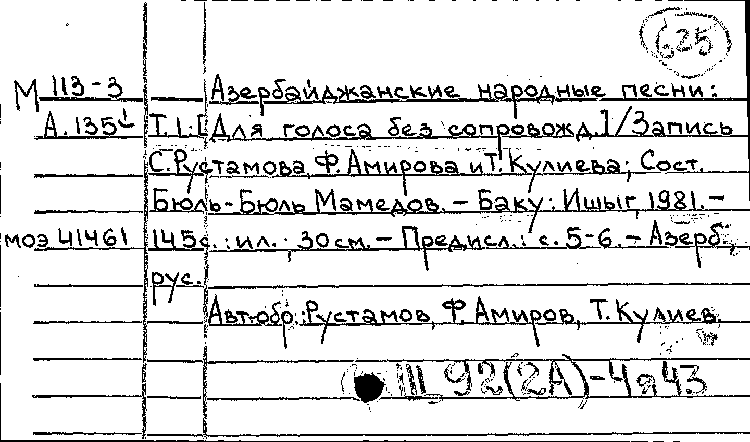 625
М 113-3 Азербайджанские народные песни:
А.135 Т.1.:[Для голоса без сопровожд.]/Запись
С.Рустамова, Ф.Амирова и Т.Кулиева; Сост.
Бюль-Бюль Мамедов. – Баку: Ишыг, 1981. –
моэ 41461 145с.: ил.; 30см. – Предисл.: с.5-6. – Азерб.,
рус.
Авт.обр.: Рустамов, Ф. Амиров, Т. Кулиев.
III 92(2А)-4я43